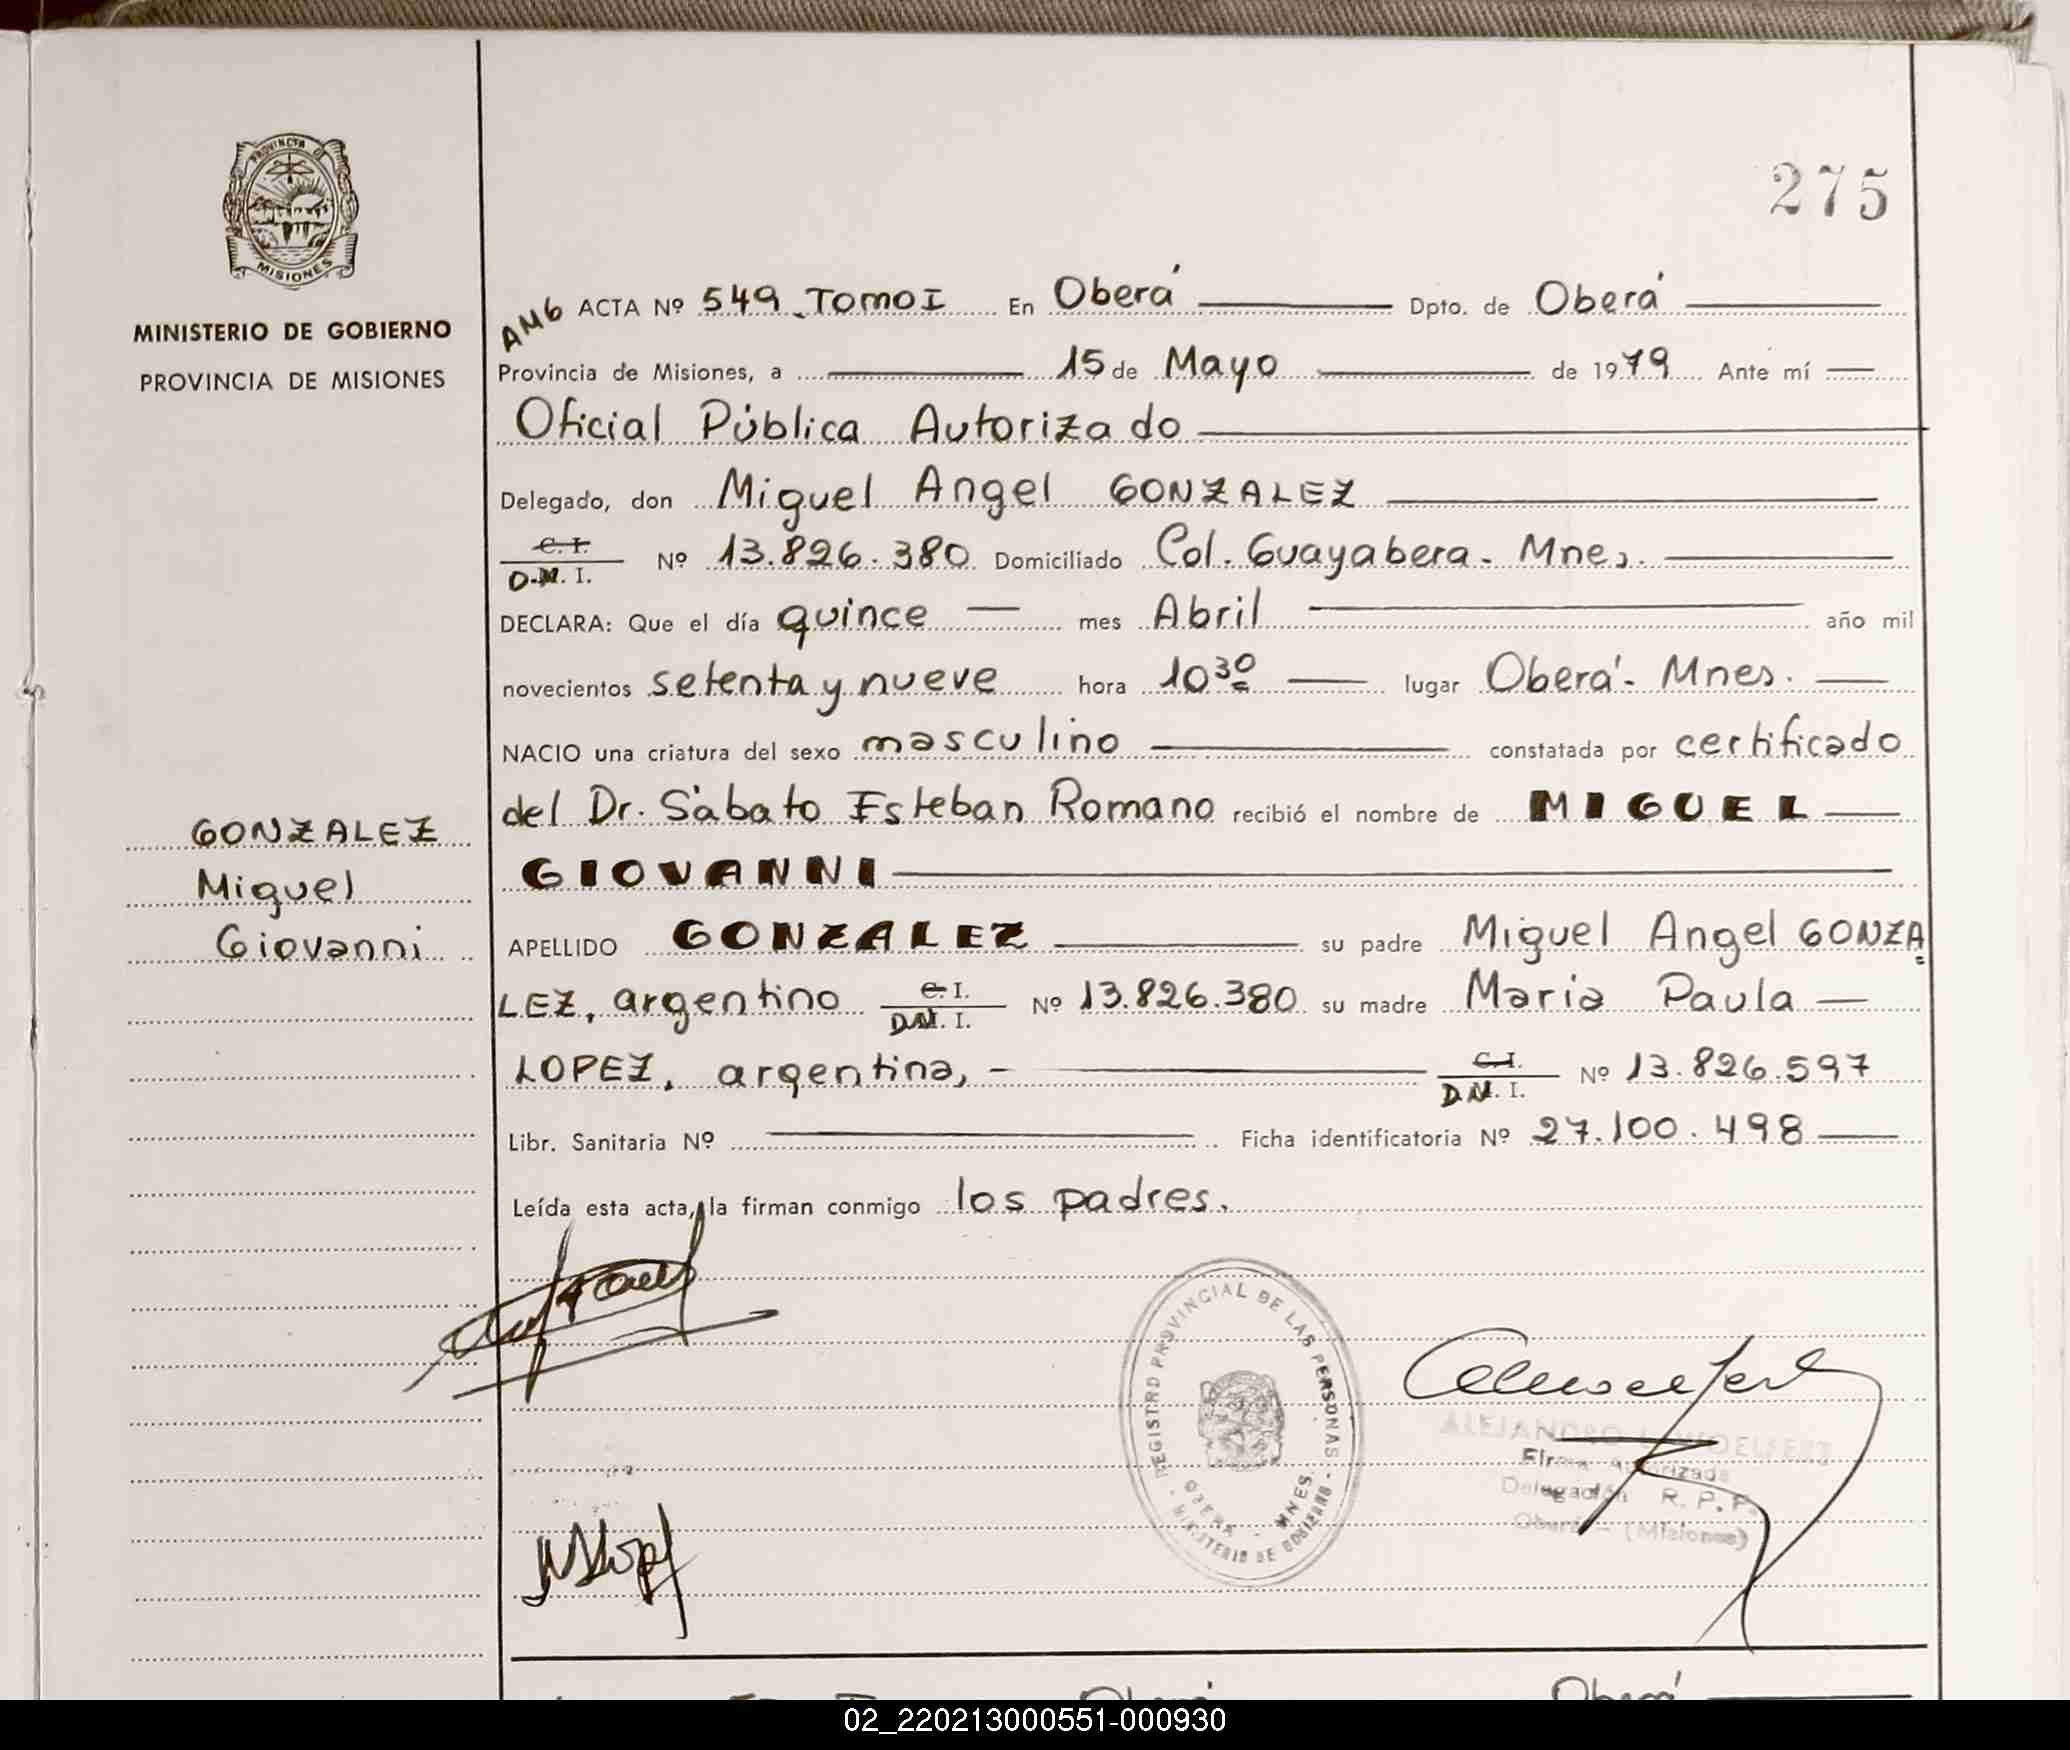 PROVINCIA DE
MISIONES
MINISTERIO DE GOBIERNO
PROVINCIA DE MISIONES
275
AMG ACTA Nº 549 TOMO I En Oberá Dpto. de Oberá
Provincia de Misiones, a 15 de Mayo de 1979 Ante mí
Oficial Pública Autorizado
Delegado, don Miguel Angel GONZALEZ
C. I.
D.N. I. Nº 13.826.380 Domiciliado Col. Guayabera - Mnes.
DECLARA: Que el día quince mes Abril año mil
novecientos setenta y nueve hora 10 30 lugar Oberá - Mnes.
NACIO una criatura del sexo masculino constatada por certificado
del Dr. Sábato Esteban Romano recibió el nombre de MIGUEL
GIOVANNI
GONZALEZ
Miguel
Giovanni
APELLIDO GONZALEZ su padre Miguel Angel GONZA
LEZ, argentino C. I. D.N. I. Nº 13.826.380 su madre Maria Paula
LOPEZ, argentina, - C. I. D.N. I. Nº 13.826.597
Libr. Sanitaria Nº Ficha identificatoria Nº 27.100.498
Leída esta acta, la firman conmigo los padres.
REGISTRO PROVINCIAL DE LAS PERSONAS
OBERA - MNES.
- MINISTERIO DE GOBIERNO -
ALEJANDRO
Firma Autorizada
Delegación R. P. P.
Oberá - (Misiones)
Oberá Oberá
02_220213000551-000930